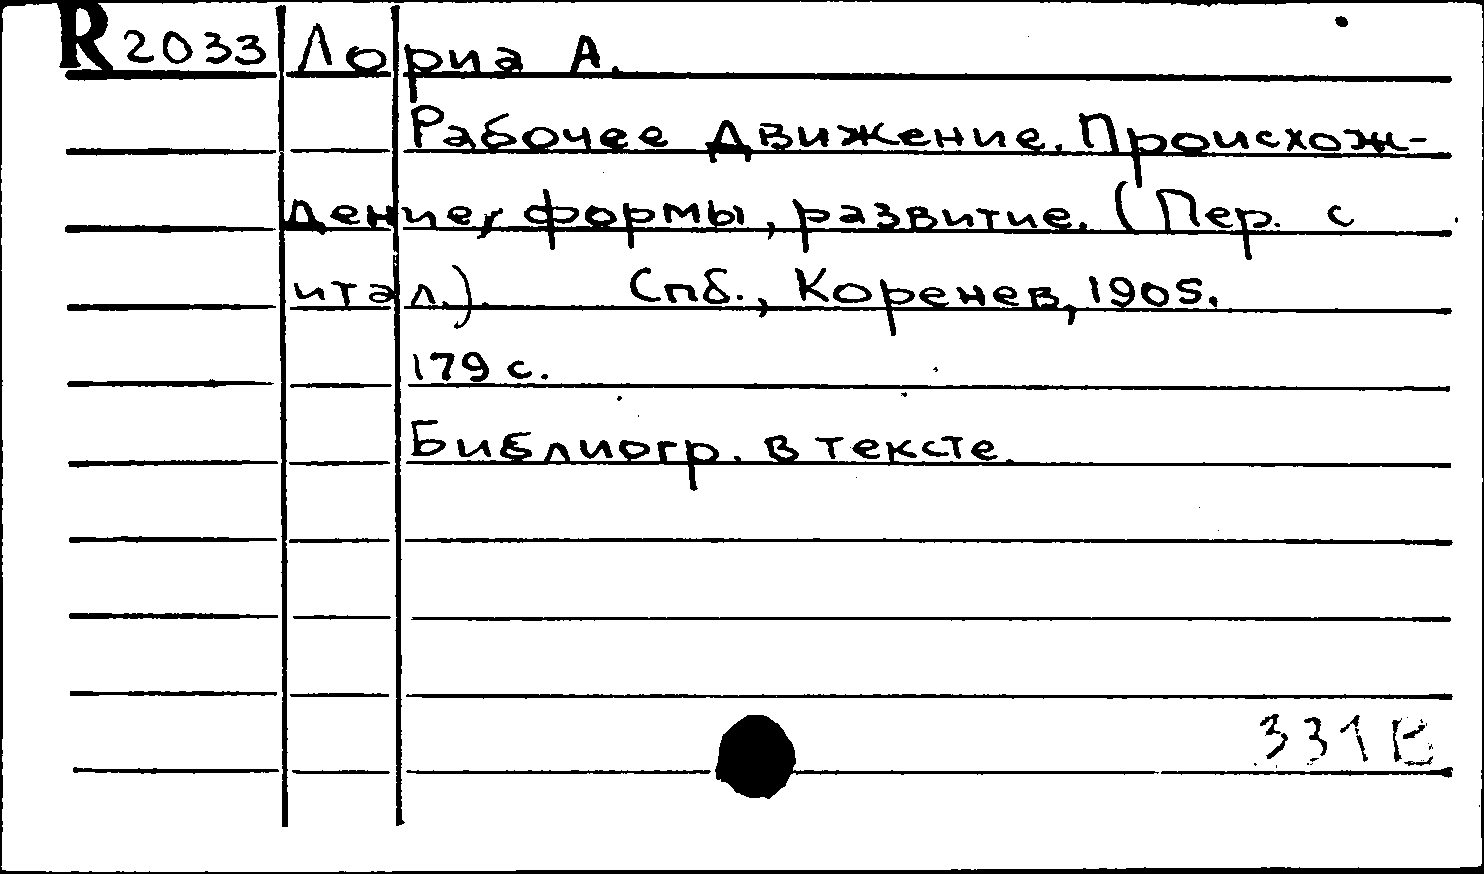 R2033 Лориа А.
Рабочее движение. Происхож-
дение, формы, развитие. (Пер. с
итал.). Спб., Коренев, 1905.
179 с.
Библиогр. в тексте.
331В